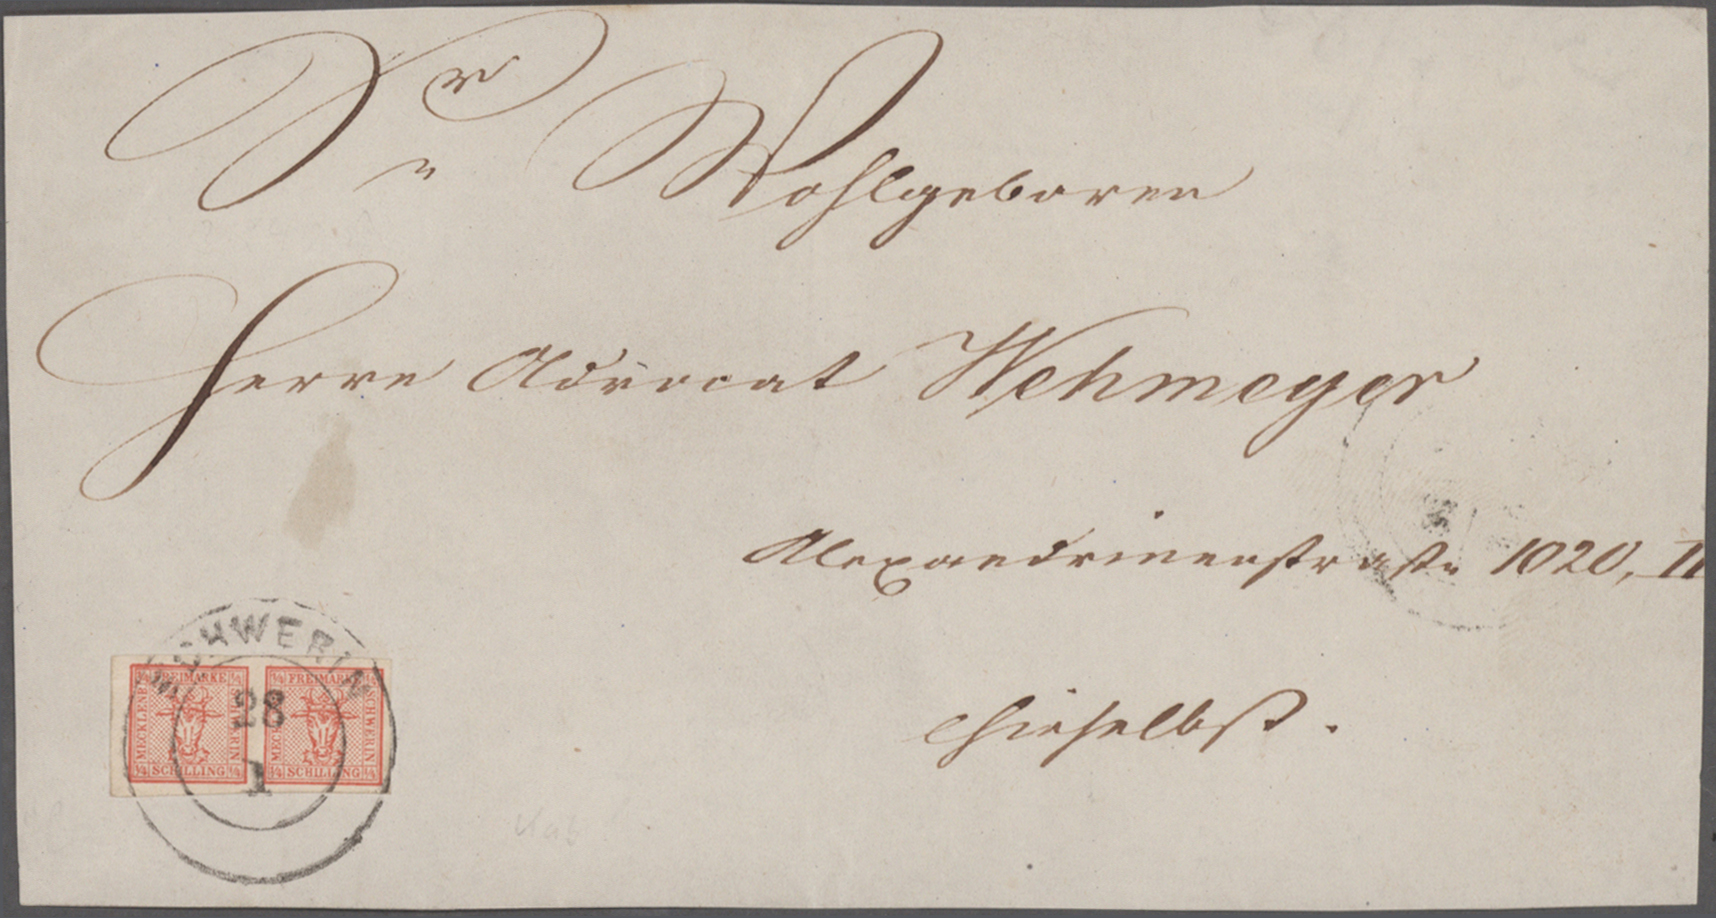 Sr Wohlgeboren
Herrn Advocat Wehmeyer
Alexandrinenstraße 1020, II
hieselbst.
SCHWERIN
28
1
1/4 FREIMARKE 1/4
MECKLENB
SCHWERIN
1/4 SCHILLING 1/4
1/4 FREIMARKE 1/4
MECKLENB
SCHWERIN
1/4 SCHILLING 1/4